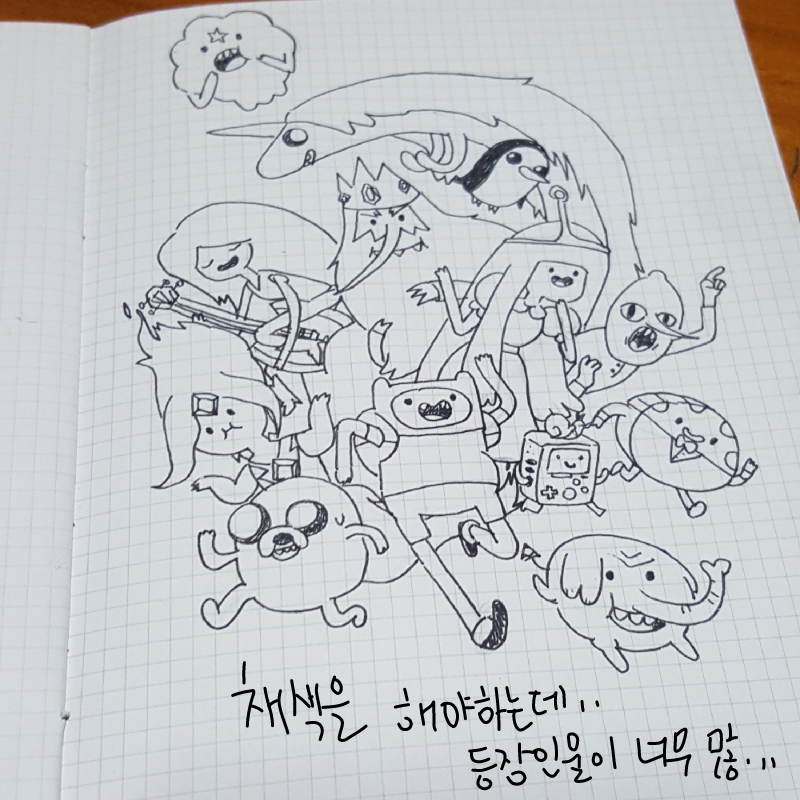 채색을 해야하는데..
등장인물이 너무 많...